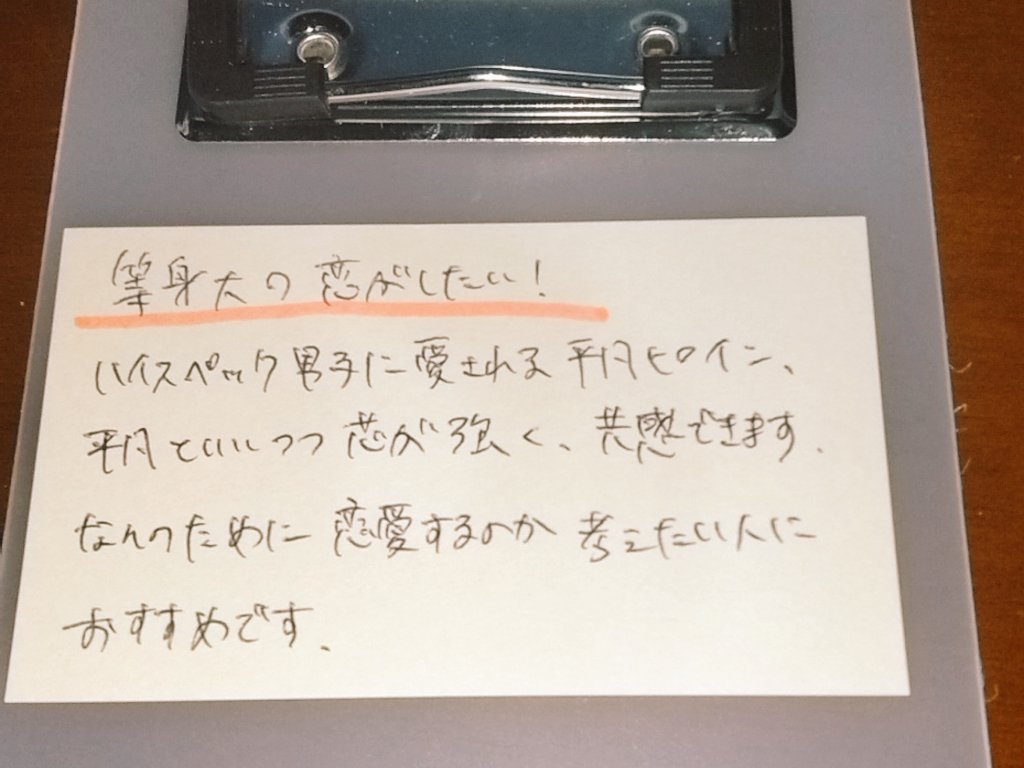 等身大の恋がしたい!
ハイスペック男子に愛される平凡ヒロイン、
平凡といいつつ芯が強く、共感できます.
なんのために恋愛するのか考えたい人に
おすすめです.